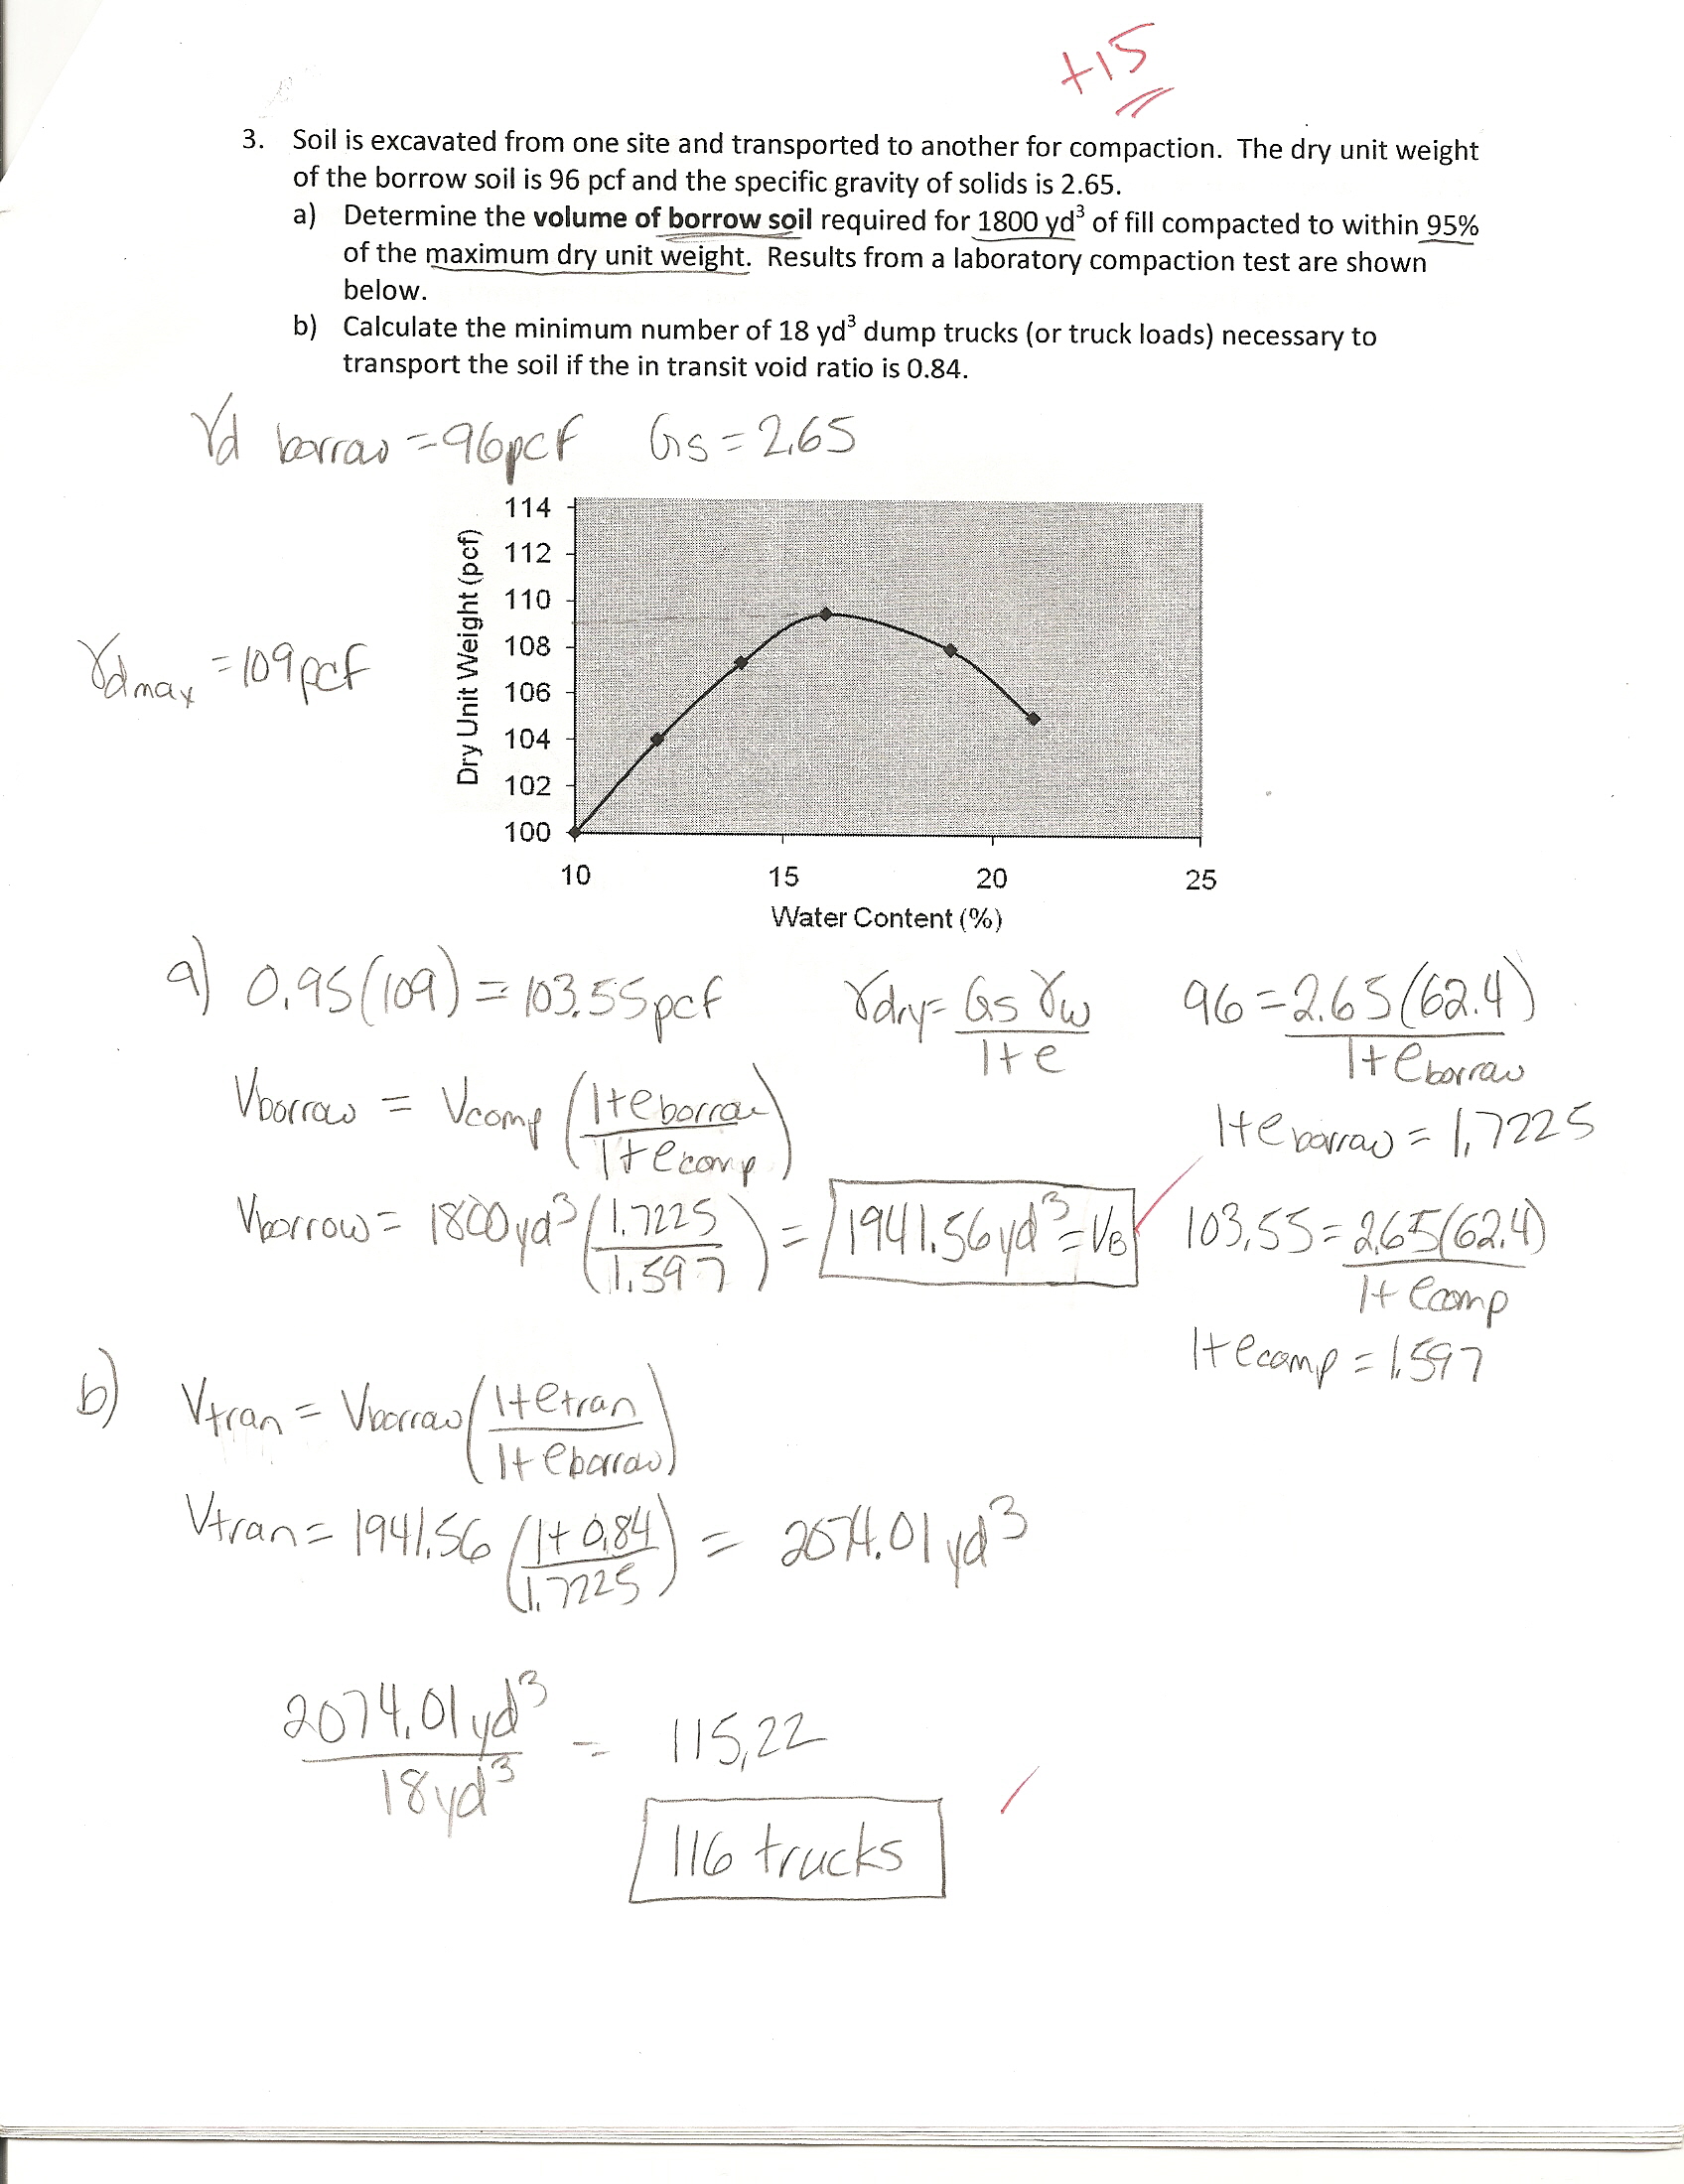 +15
3. Soil is excavated from one site and transported to another for compaction. The dry unit weight
of the borrow soil is 96 pcf and the specific gravity of solids is 2.65.
a) Determine the volume of borrow soil required for 1800 yd³ of fill compacted to within 95%
of the maximum dry unit weight. Results from a laboratory compaction test are shown
below.
b) Calculate the minimum number of 18 yd³ dump trucks (or truck loads) necessary to
transport the soil if the in transit void ratio is 0.84.
γd borrow = 96pcf Gs = 2.65
114
112
110
108
106
104
102
100
Dry Unit Weight (pcf)
10 15 20 25
Water Content (%)
γdmax = 109pcf
a) 0.95(109) = 103.55pcf
γdry = Gs γw / 1+e
96 = 2.65(62.4) / 1+eborrow
1+eborrow = 1.7225
Vborrow = Vcomp (1+eborrow / 1+ecomp)
Vborrow = 1800yd³ (1.7225 / 1.597) = 1941.56yd³ = VB
103.55 = 2.65(62.4) / 1+ecomp
1+ecomp = 1.597
b) Vtran = Vborrow (1+etran / 1+eborrow)
Vtran = 1941.56 (1+0.84 / 1.7225) = 2074.01yd³
2074.01yd³ / 18yd³ = 115.22
116 trucks